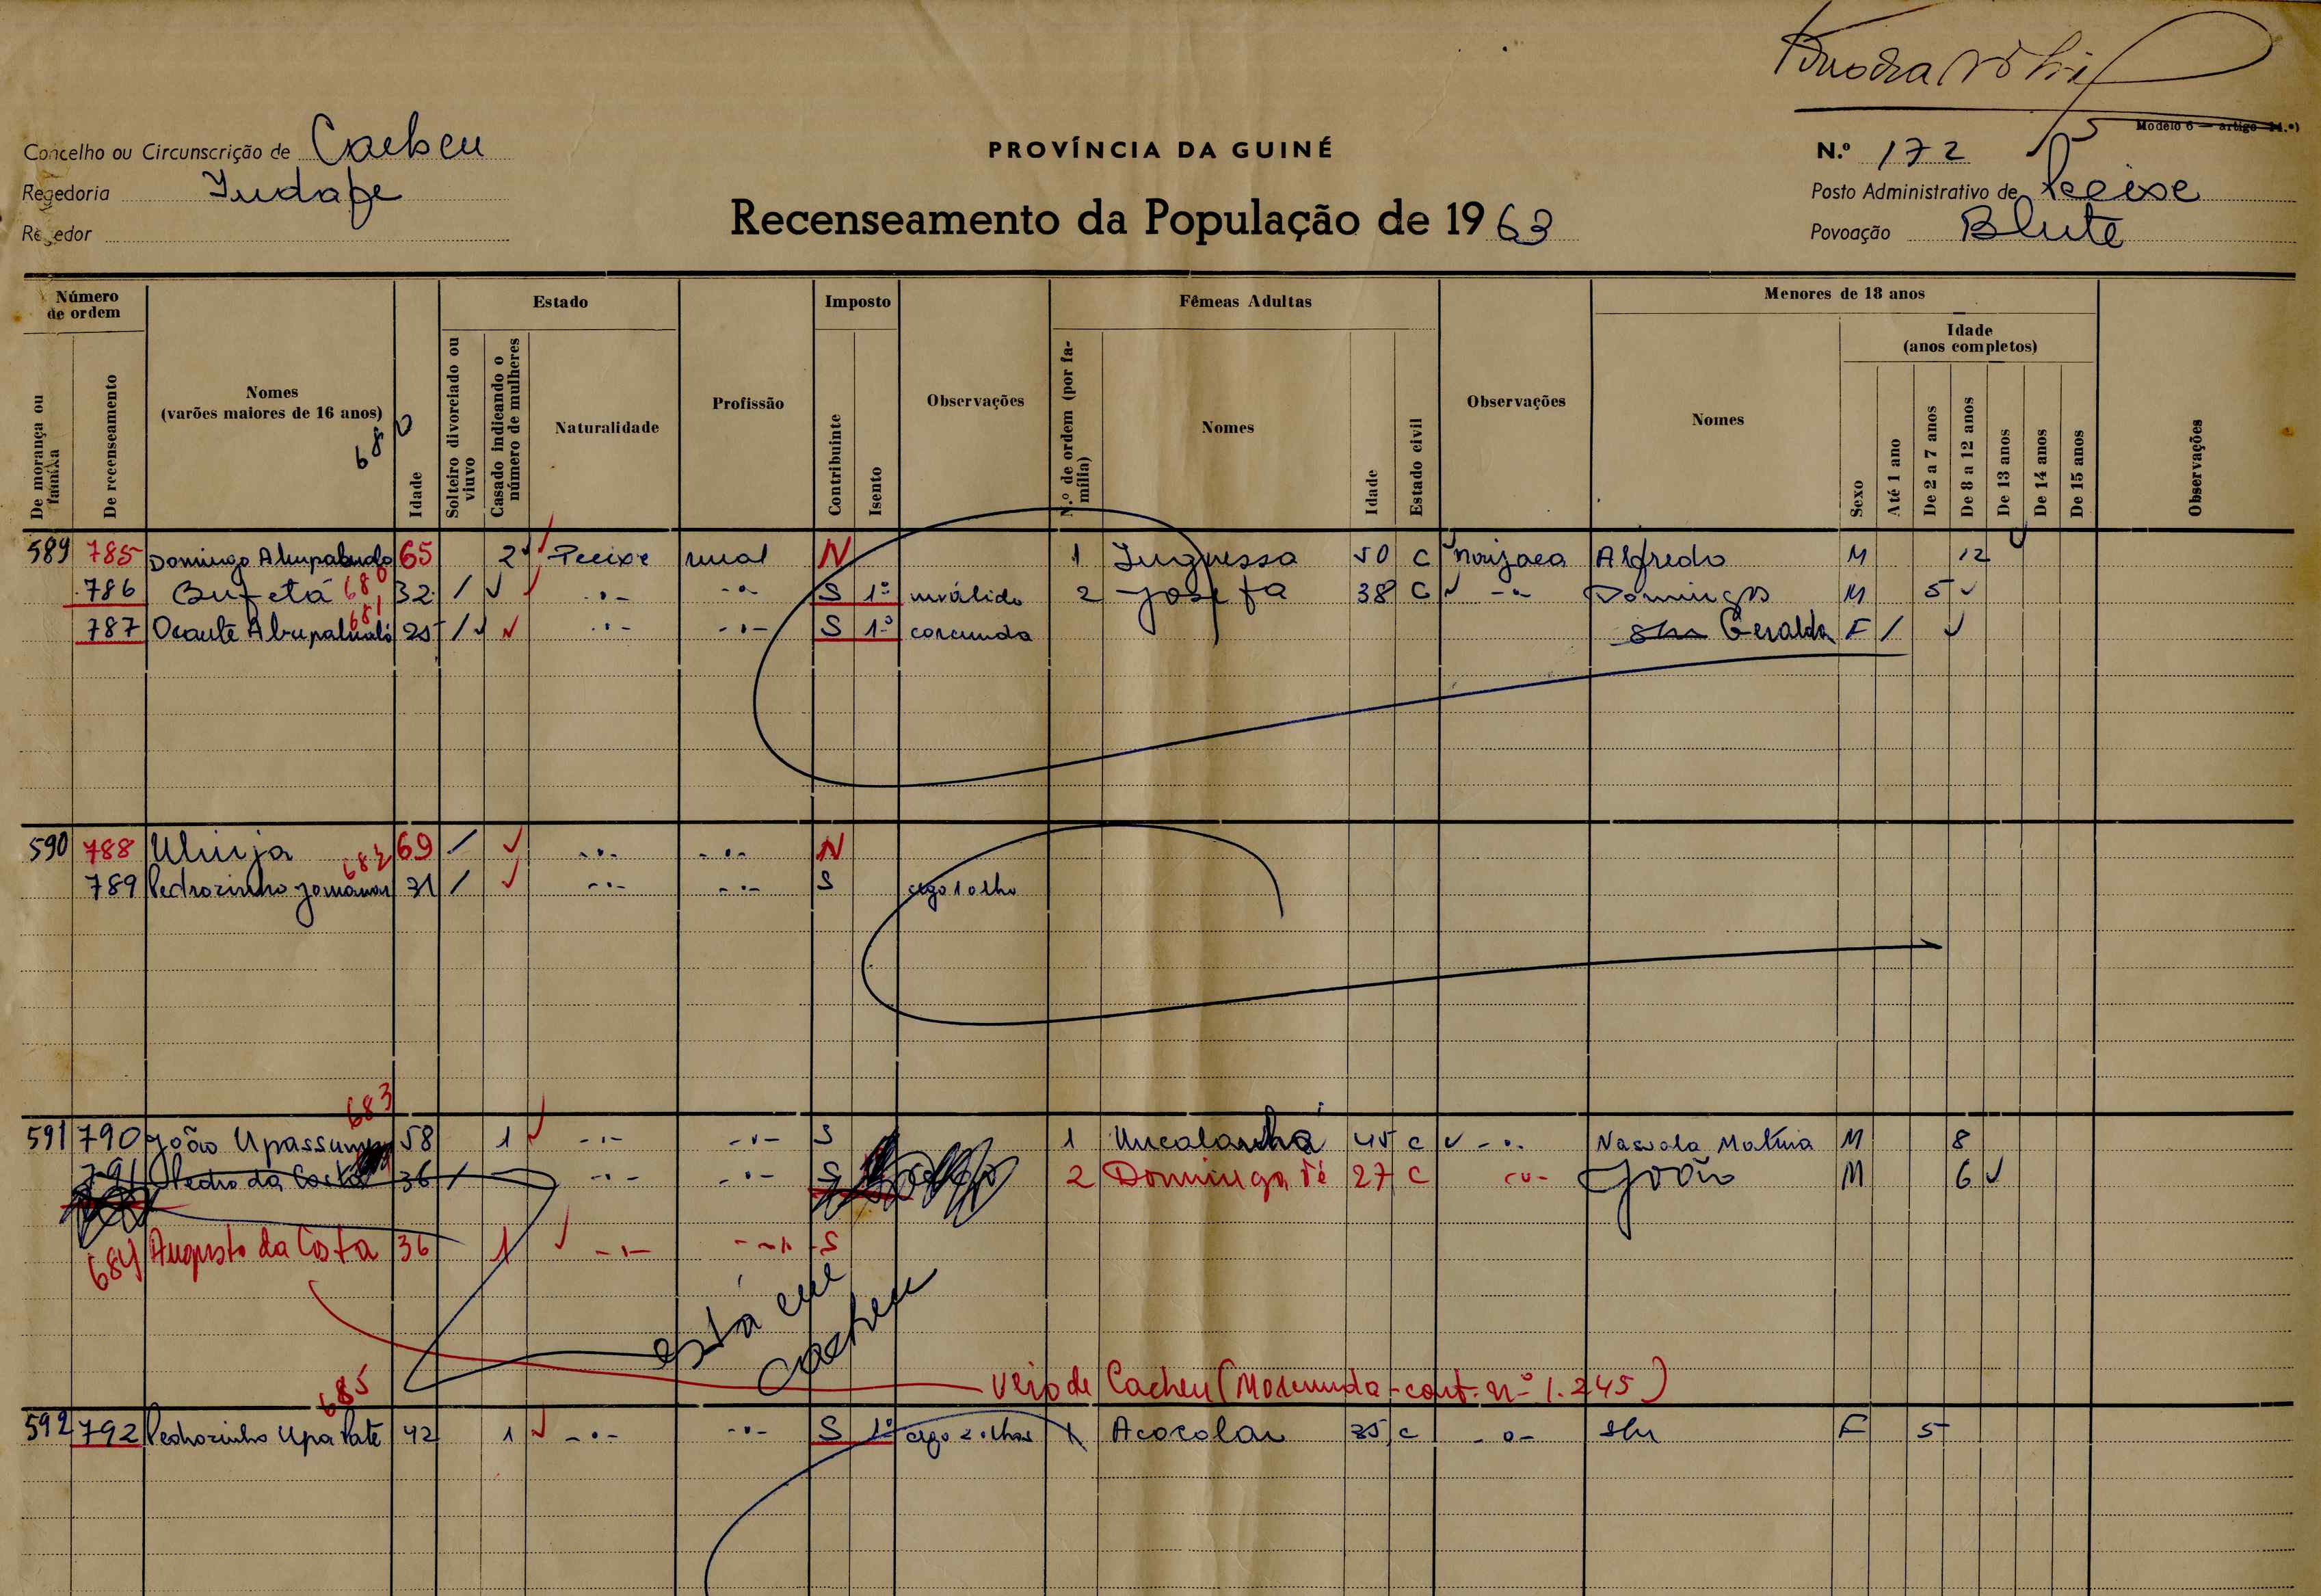 Modelo 6 — artigo 14.º)
Concelho ou Circunscrição de Cacheu
PROVÍNCIA DA GUINÉ
N.º 172
Regedoria
Posto Administrativo de Pecixe
Regedor
Recenseamento da População de 1963
Povoação Blute
Número de ordem
Estado
Imposto
Fêmeas Adultas
Menores de 18 anos
Idade
(anos completos)
De morança ou família
De recenseamento
Nomes
(varões maiores de 16 anos)
680
Idade
Solteiro divorciado ou viuvo
Casado indicando o número de mulheres
Naturalidade
Profissão
Contribuinte
Isento
Observações
N.º de ordem (por família)
Nomes
Idade
Estado civil
Observações
Nomes
Sexo
Até 1 ano
De 2 a 7 anos
De 8 a 12 anos
De 13 anos
De 14 anos
De 15 anos
Observações
589 785 Domingo 65 2 Pecixe rural N 1 50 C Alfredo M 12
786 680 32 / -.- -.- S 1º inválido 2 Josefa 38 C -.- Domingos M 5
787 681 25 / -.- -.- S 1º corcunda Geralda F /
590 788 69 / -.- -.- N
682
789 Pedrozinho 31 / -.- -.- S cego 1 olho
683
591 790 João 58 1 -.- -.- S 1 45 C -.- M 8
791 Pedro da Costa 36 / -.- -.- S 2 Dominga 27 C João M 6
684 Augusto da Costa 36 1 -.- S
está em
Cacheu
Veio de Cacheu ( - cont. nº 1.245)
685
592 792 Pedrozinho Upa Pate 42 1 -.- -.- S 1º cego 2 olhos 1 Acocolar 35 C -.- F 5